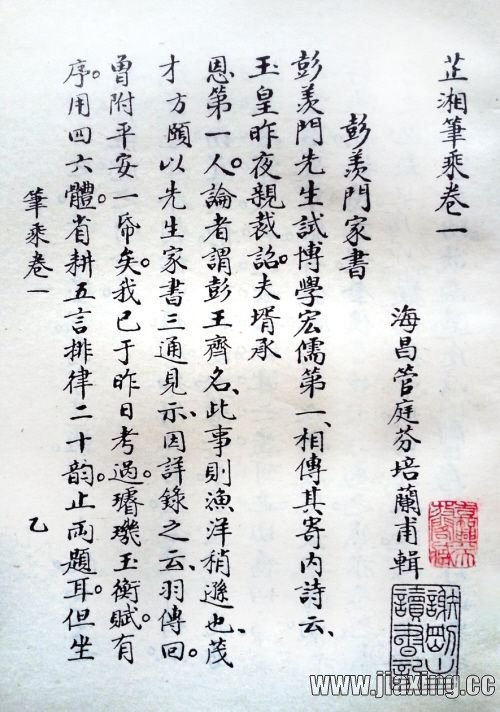 芷湘筆乘卷一
海昌管庭芬培蘭甫輯
彭羨門家書
彭羨門先生試博學宏儒第一、相傳其寄內詩云、
玉皇昨夜親裁詔。夫壻承
恩第一人。論者謂彭王齊名、此事則漁洋稍遜也、茂
才方頤以先生家書三通見示、因詳錄之云、羽傳回。
曾附平安一帋矣。我已于昨日考過。璿璣玉衡賦。有
序。用四六體。省耕五言排律二十韵。止兩題耳。但坐
筆乘卷一
乙
謝剛主
讀書記
www.jiaxing.cc